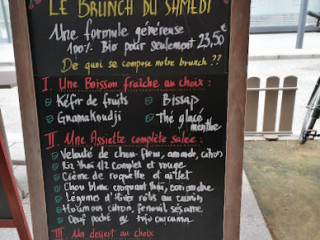 LE BRUNCH DU SAMEDI
Une formule généreuse
100% Bio pour seulement 23,50€
De quoi se compose notre brunch ??
I. Une Boisson fraîche au choix :
Kéfir de fruits
Bissap
Gnamakoudji
Thé glacé
menthe
II. Une Assiette complète salée :
Velouté de chou-fleur, amande, citron
Riz thaï 1/2 complet et rouge
Crème de roquette et aillet
Chou blanc croquant thaï, coriandre
Légumes d'hiver rôtis au cumin
Houmous citron, fenouil, sésame
Oeuf poché curcuma
III. Un dessert au choix